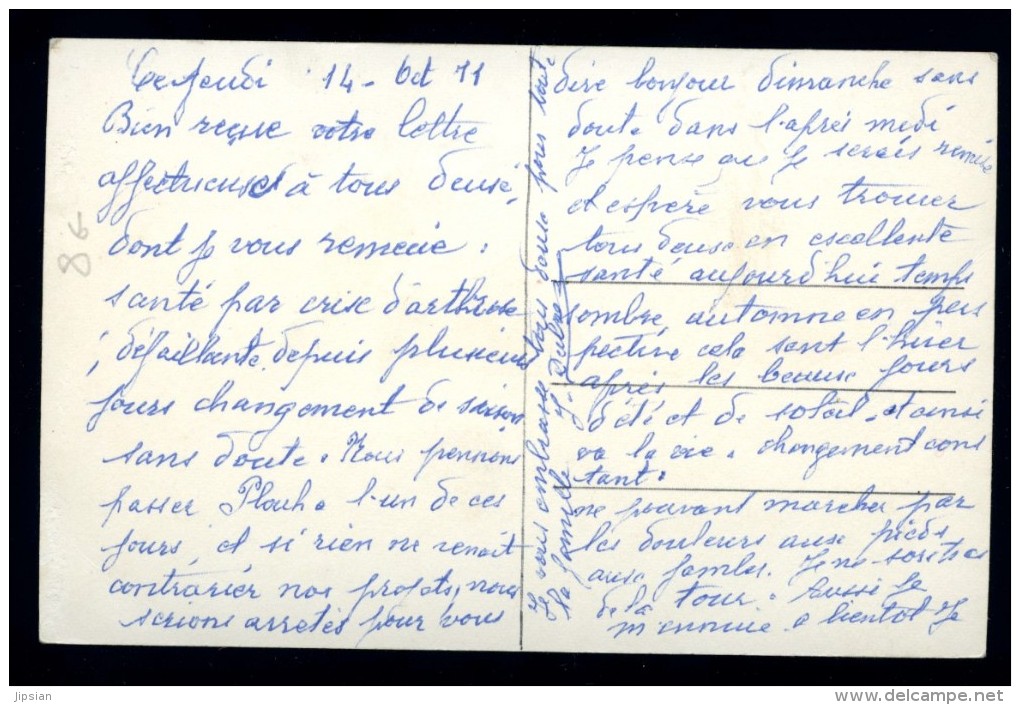 Ce Jeudi 14 - Oct 71
Bien reçue votre lettre
affectueuse à tous deux,
dont je vous remercie :
santé par crise d'arthrose
, défaillante. depuis plusieurs
jours changement de saison,
sans doute. Nous pensons
passer Plouha l'un de ces
jours, et si rien ne venait
contrarier nos projets, nous
serions arretés pour vous
dire bonjour dimanche sans
doute dans l'après midi
Je pense que je serais remise
et espère vous trouver
tous deux en excellente
santé aujourd'hui temps
sombre, automne en pers
pective cela sent l'hiver
après les beaux jours
d'été et de soleil. et ainsi
va la vie. changement cons
tant.
ne pouvant marcher par
les douleurs aux pieds
aux jambes. Je ne sors pas
de la tour. Aussi je
m'ennuie. a bientot je
Je vous embrasse tous deux pour toute
la famille J.
86
Jipsian
www.delcampe.net